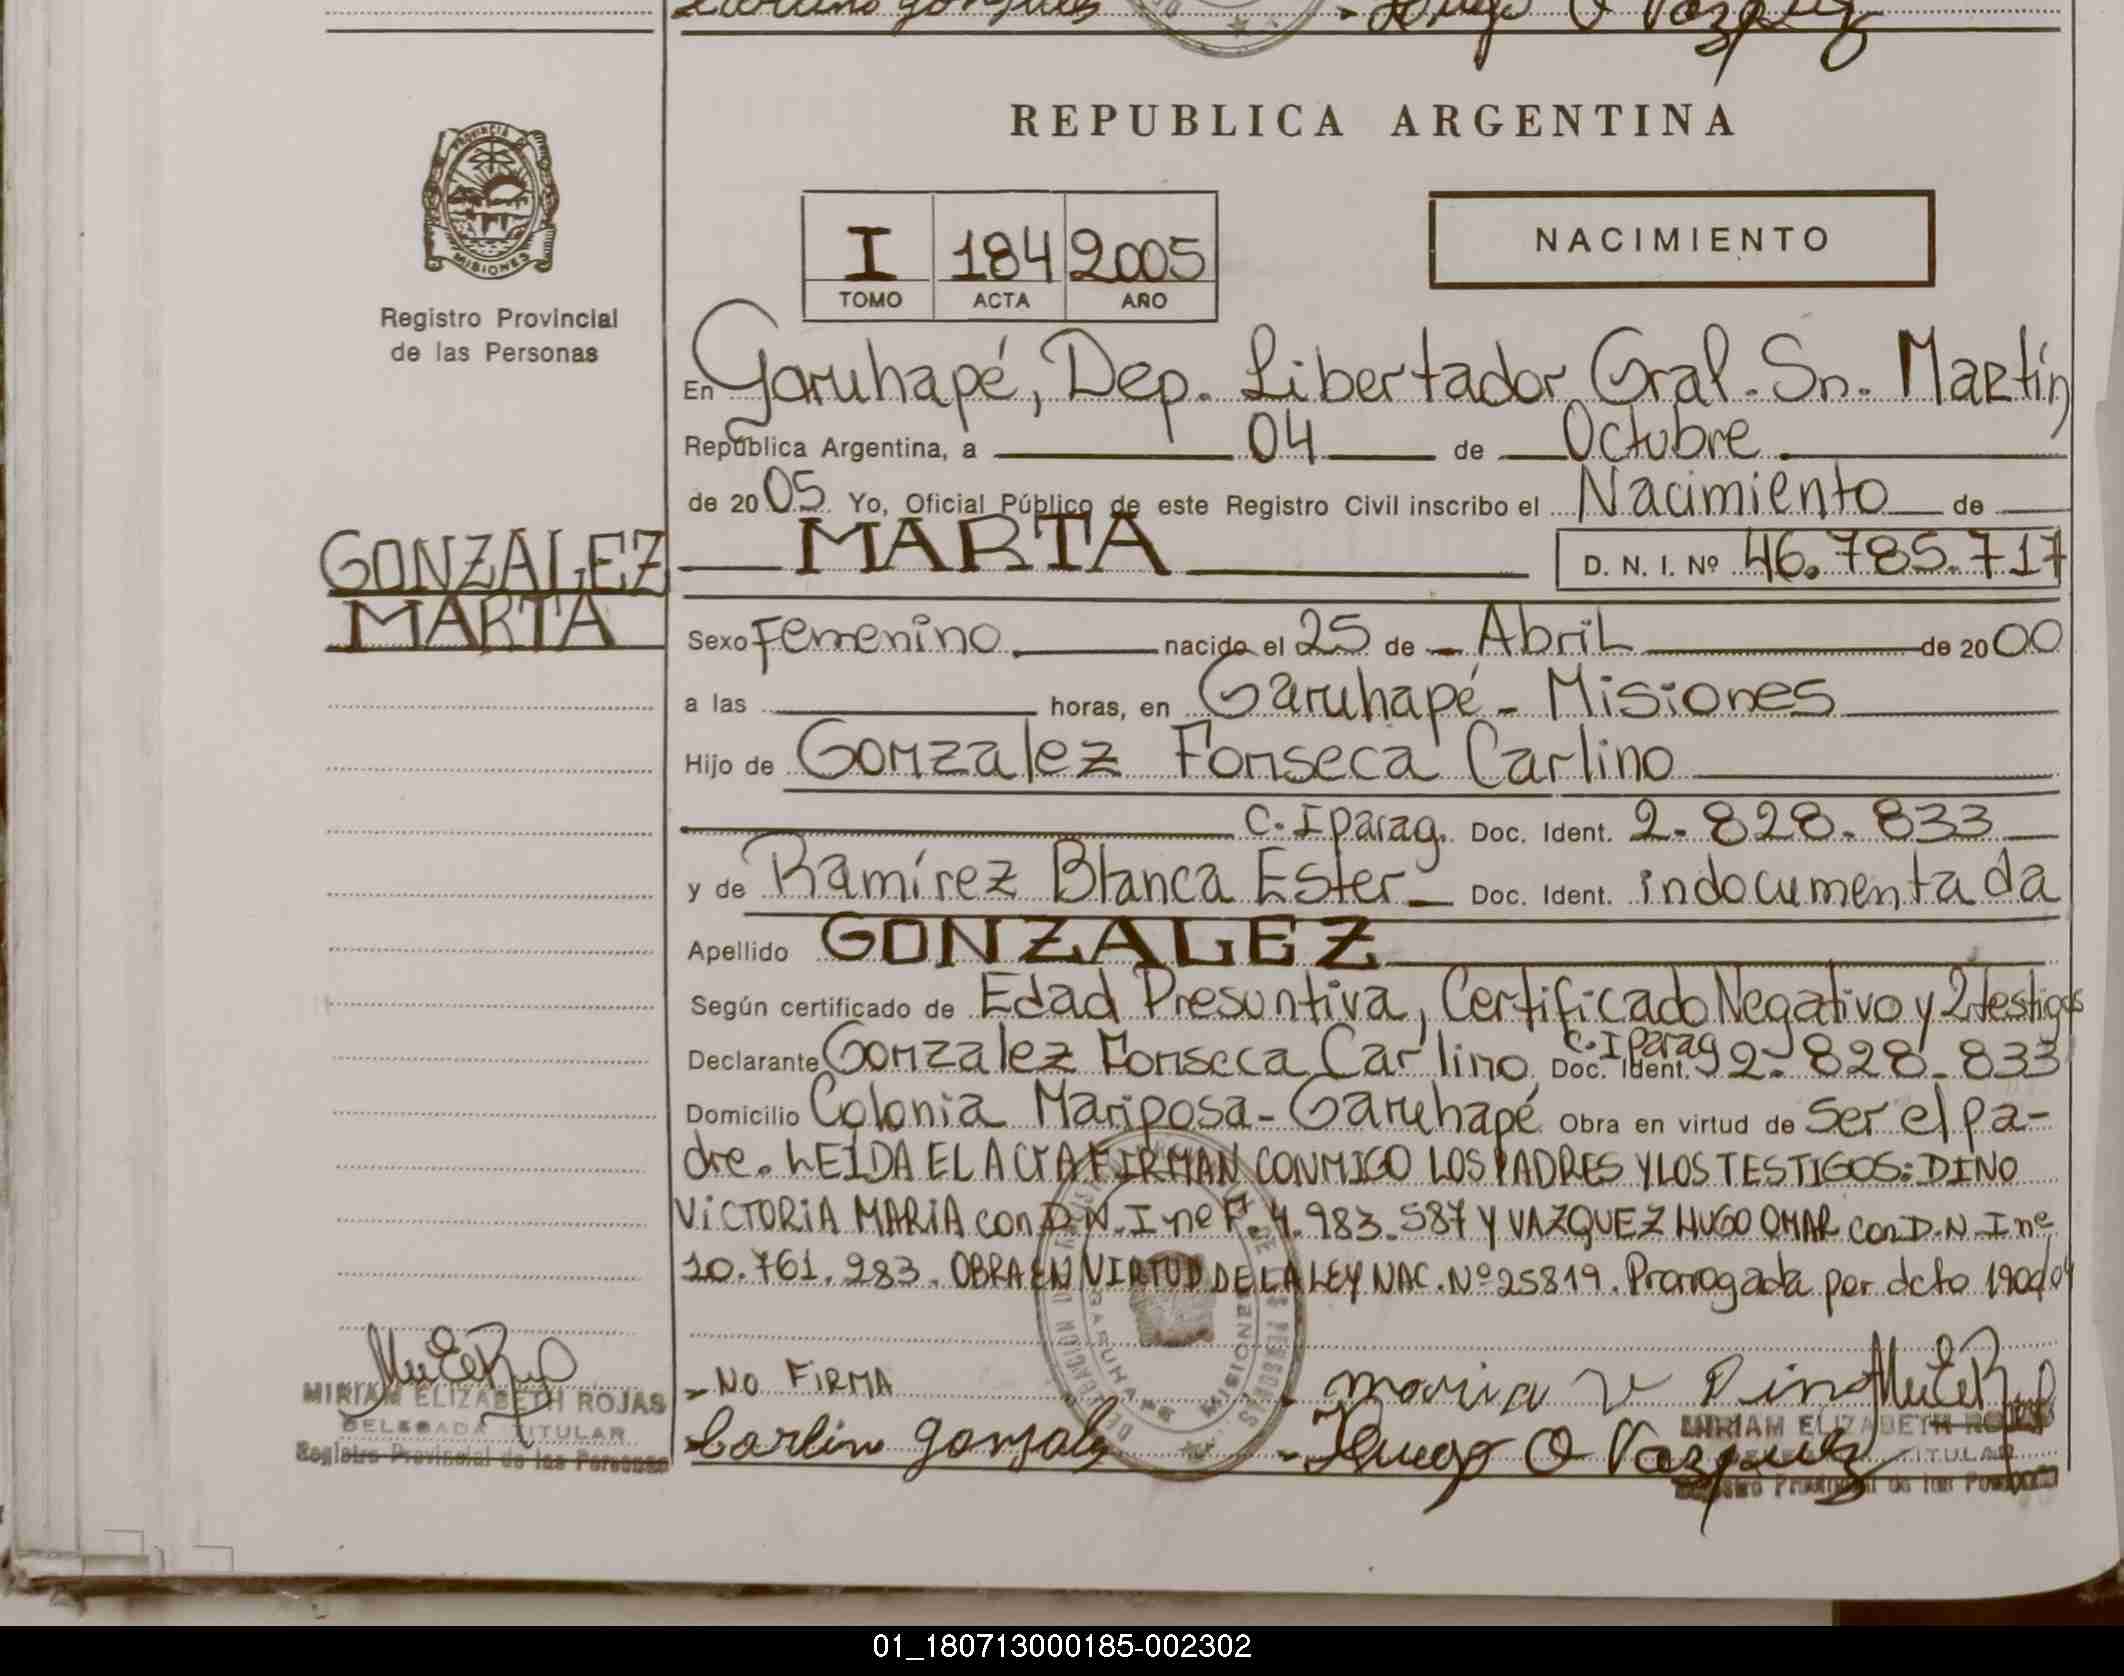 REPUBLICA ARGENTINA
PROVINCIA DE MISIONES
Registro Provincial
de las Personas
I 184 2005
TOMO ACTA AÑO
NACIMIENTO
En Garuhapé, Dep. Libertador Gral. Sn. Martín
República Argentina, a 04 de Octubre
de 2005 Yo, Oficial Público de este Registro Civil inscribo el Nacimiento de
GONZALEZ
MARTA
MARTA D. N. I. Nº 46.785.717
Sexo Femenino nacido el 25 de Abril de 2000
a las horas, en Garuhapé - Misiones
Hijo de Gonzalez Fonseca Carlino
C. I parag. Doc. Ident. 2-828.833
y de Ramírez Blanca Ester - Doc. Ident. indocumentada
Apellido GONZALEZ
Según certificado de Edad Presuntiva, Certificado Negativo y 2 testigos
Declarante Gonzalez Fonseca Carlino Doc. Ident. C. I parag 2-828-833
Domicilio Colonia Mariposa - Garuhapé Obra en virtud de Ser el pa-
dre. LEÍDA EL ACTA FIRMAN CONMIGO LOS PADRES Y LOS TESTIGOS: DINO
VICTORIA MARIA con D.N.I nº F. 4.983.587 Y VAZQUEZ HUGO OMAR con D.N.I nº
10.761.283. OBRA EN VIRTUD DE LA LEY NAC. Nº 25819. Prorrogada por dcto 1900/04
- NO FIRMA
Maria V Dino
Carlino Gonzalez
- Hugo O Vazquez
MIRIAM ELIZABETH ROJAS
DELEGADA TITULAR
Registro Provincial de las Personas
MIRIAM ELIZABETH ROJAS
DELEGADA TITULAR
Registro Provincial de las Personas
01_180713000185-002302